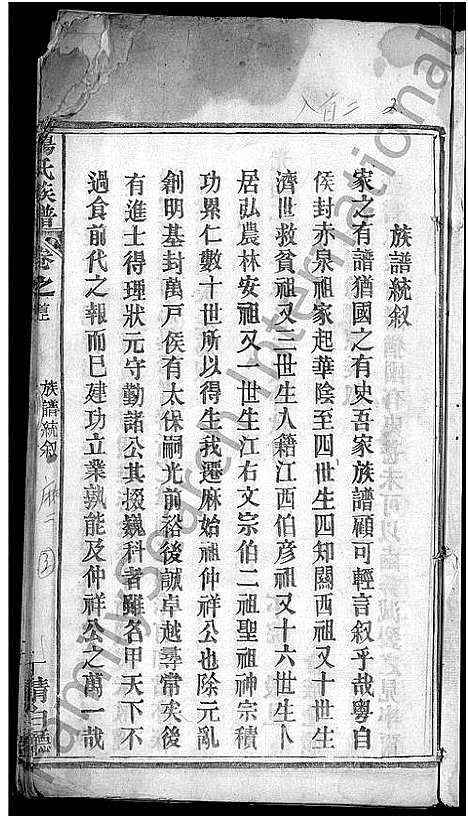 族譜統叙
家之有譜猶國之有史吾家族譜顧可輕言叙乎哉粤自
侯封赤泉祖家起華陰至四世生四知關西祖又十世生
濟世救貧祖又三世生入籍江西伯彦祖又十六世生卜
居弘農林安祖又一世生江右文宗伯二祖聖祖神宗積
功累仁數十世所以得生我遷麻始祖仲祥公也除元亂
創明基封萬戶侯有太保嗣光前裕後誠卓越尋常矣後
有進士得理狀元守勤諸公其掇巍科者雖名甲天下不
過食前代之報而巳建功立業孰能及仲祥公之萬一哉
楊氏族譜
卷之
族譜統叙
麻二
②
一
清白德
入首二
FamilySearch International